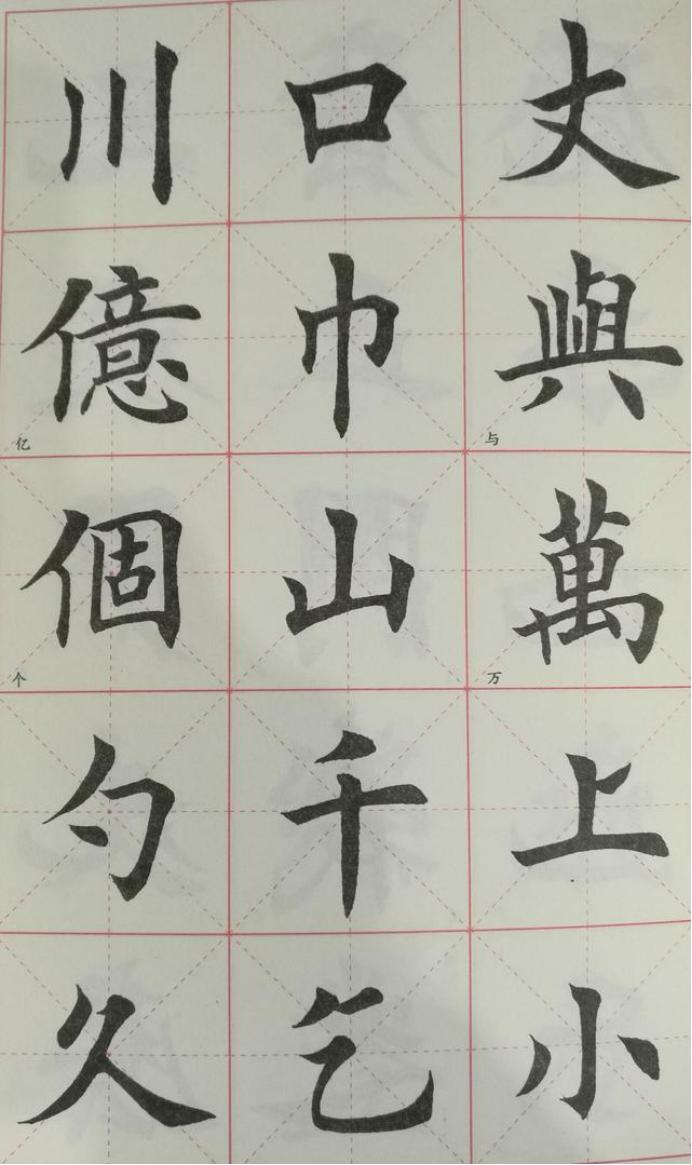 丈與与萬万上小
口巾山千乞
川億亿個个勺久